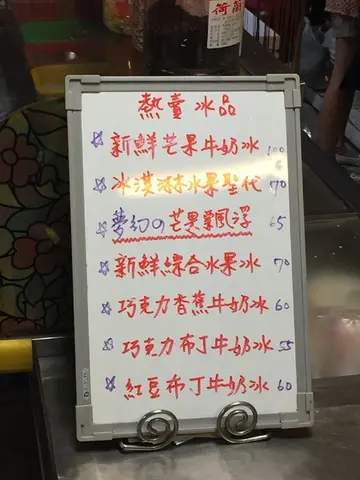 荷蘭
熱賣冰品
☆新鮮芒果牛奶冰 100
☆冰淇淋水果聖代 70
☆夢幻の芒果飄浮 65
☆新鮮綜合水果冰 70
☆巧克力香蕉牛奶冰 60
☆巧克力布丁牛奶冰 55
☆紅豆布丁牛奶冰 60